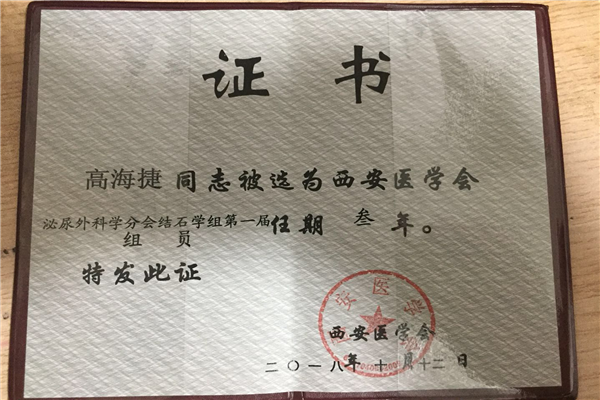 证书
高海捷 同志被选为西安医学会
泌尿外科学分会结石学组第一届任期 叁 年。
组员
特发此证
西安医学会
二〇一八年十月十二日